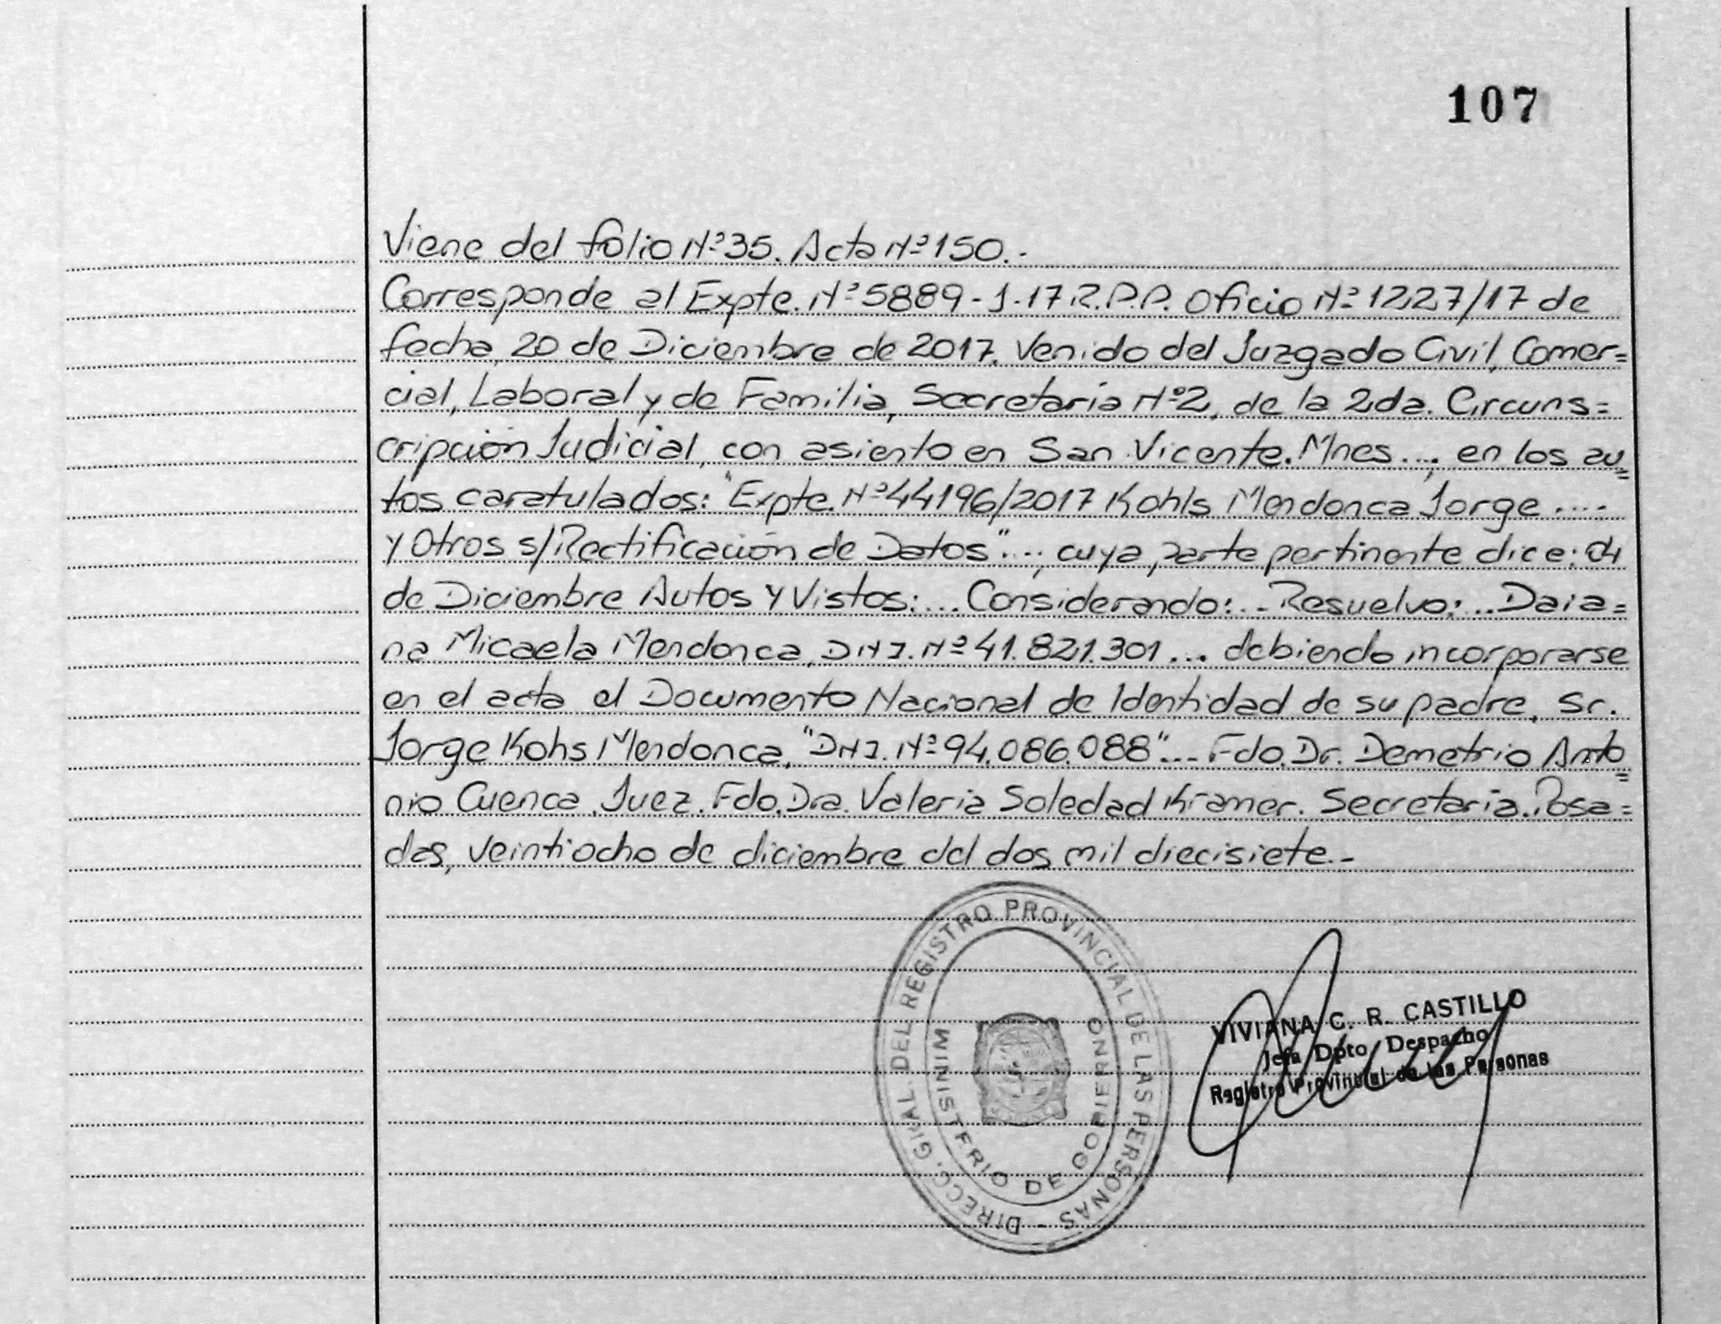 107
Viene del folio Nº35. Acta Nº150.-
Corresponde al Expte. Nº5889-J-17 R.P.P. Oficio Nº1227/17 de
fecha 20 de Diciembre de 2017. Venido del Juzgado Civil, Comer=
cial, Laboral y de Familia, Secretaría Nº2, de la 2da. Circuns=
cripción Judicial, con asiento en San Vicente. Mnes..., en los au=
tos caratulados: "Expte. Nº44196/2017 Kohls Mendonca Jorge ....
y Otros s/Rectificación de Datos"..., cuya parte pertinente dice: 04
de Diciembre Autos y Vistos:... Considerando:.. Resuelvo:... Daia=
na Micaela Mendonca, DNI. Nº41.821.301... debiendo incorporarse
en el acta el Documento Nacional de Identidad de su padre, Sr.
Jorge Kohs Mendonca, "DNI. Nº94.086.088"... Fdo. Dr. Demetrio Anto=
nio Cuenca. Juez. Fdo. Dra. Valeria Soledad Kramer. Secretaria. Posa=
das, veintiocho de diciembre del dos mil diecisiete.-
DIRECC. GRAL. DEL REGISTRO PROVINCIAL DE LAS PERSONAS -
MINISTERIO DE GOBIERNO
VIVIANA C. R. CASTILLO
Jefa Dpto Despacho
Registro Provincial de las Personas